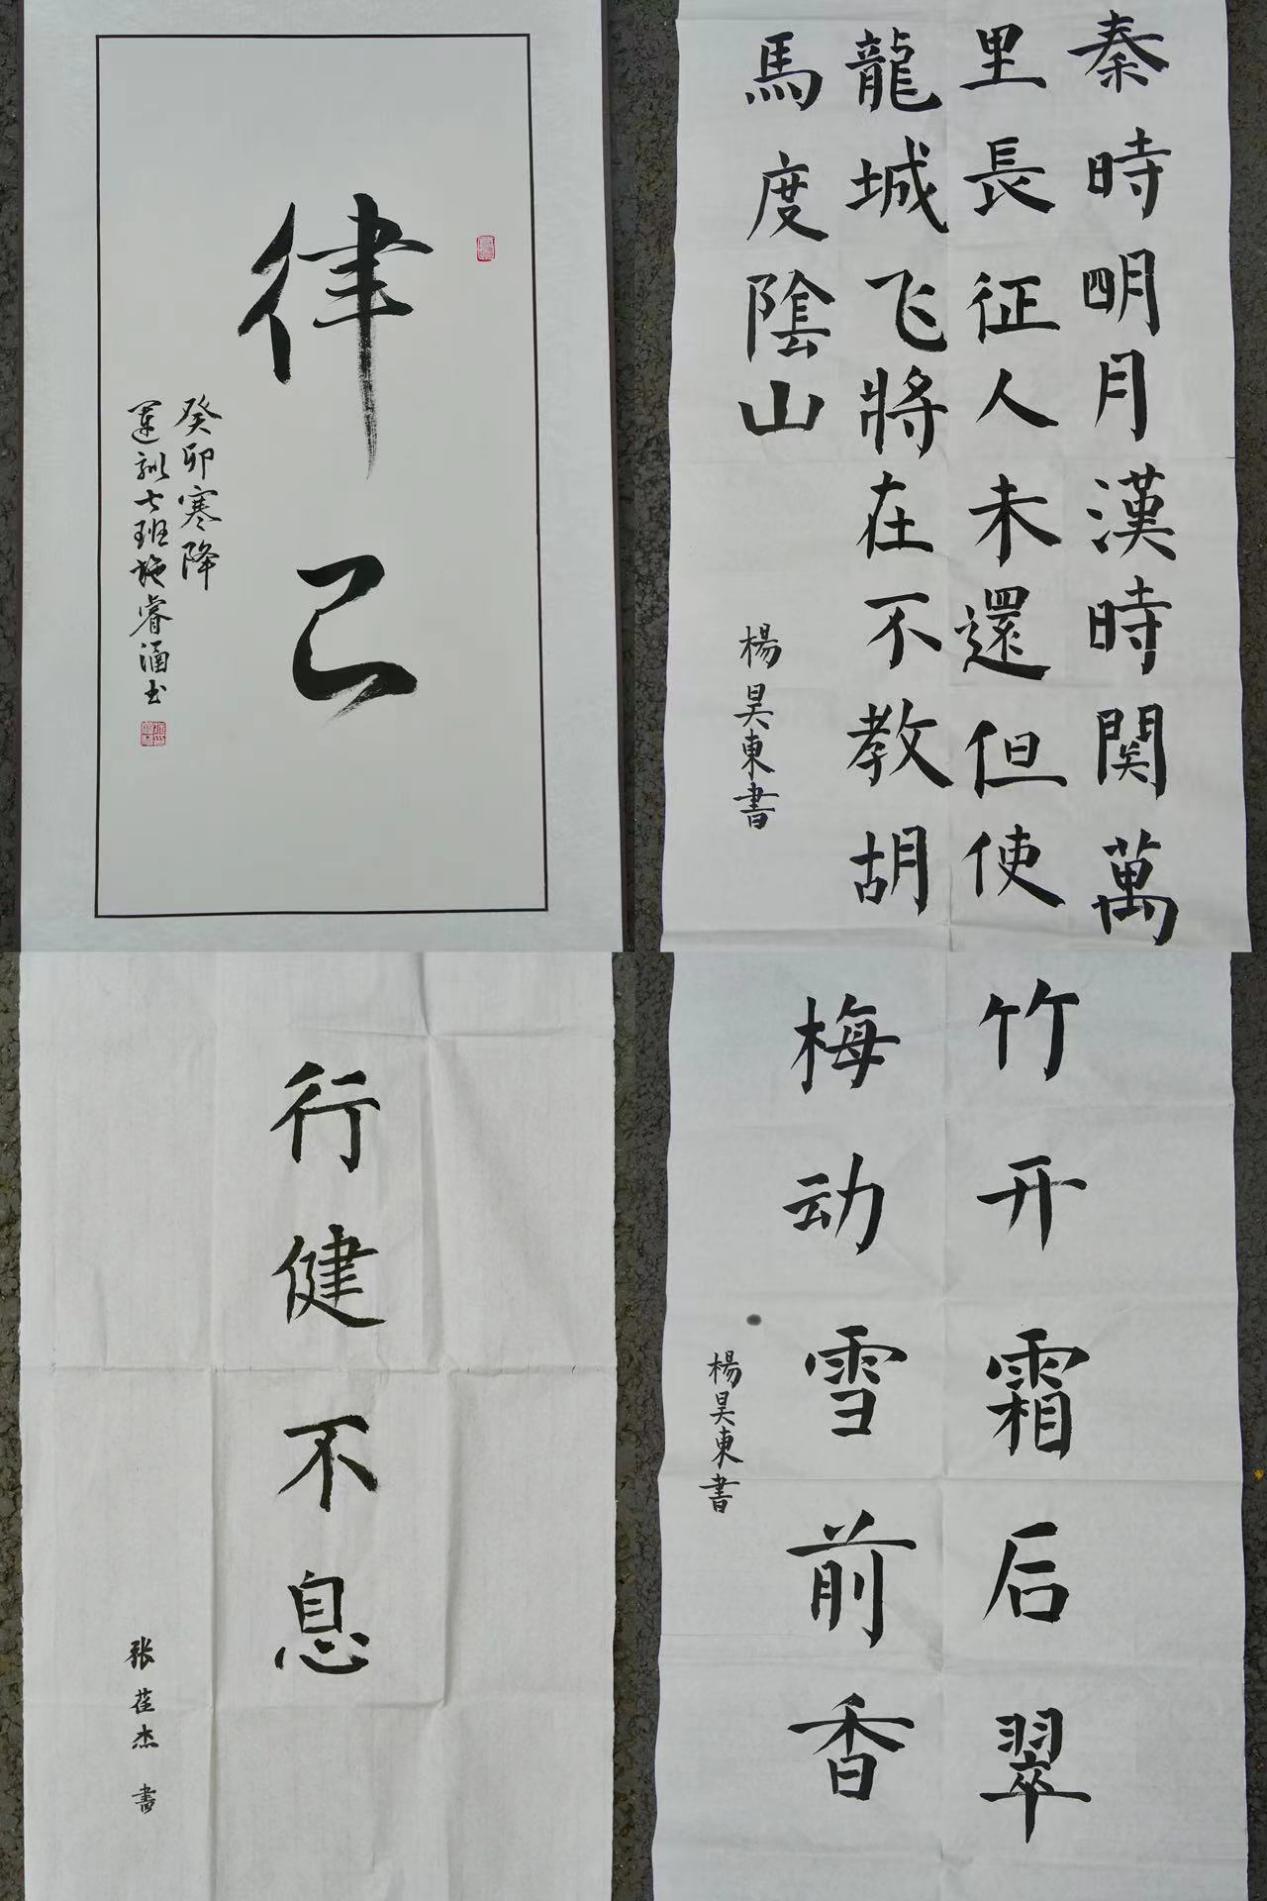 律己
癸卯寒降
运训七班施睿涵书
秦時明月漢時関萬
里長征人未還但使
龍城飞將在不教胡
馬度陰山
楊昊東書
行健不息
张荏杰書
竹开霜后翠
梅动雪前香
楊昊東書